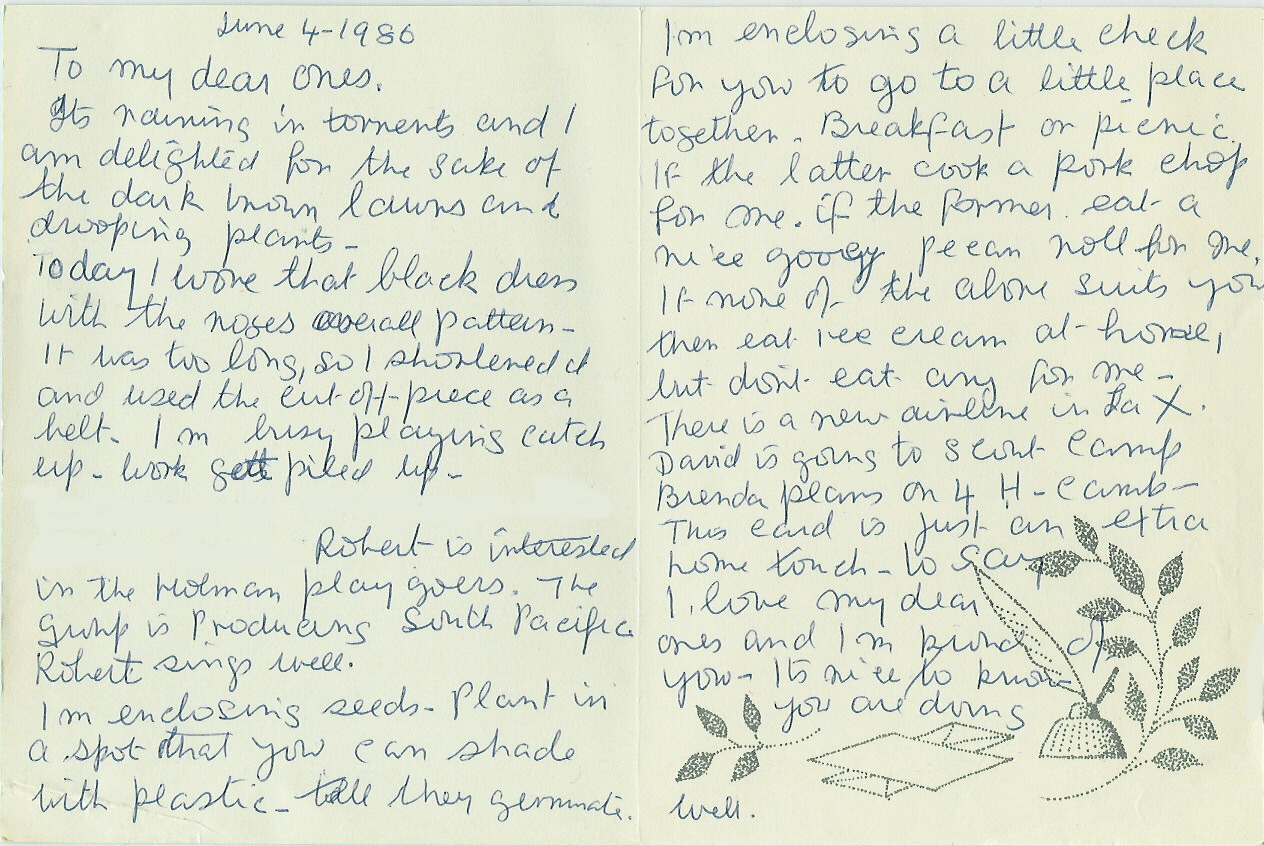 June 4-1986
To my dear ones.
Its raining in torrents and I
am delighted for the sake of
the dark brown lawns and
drooping plants-
Today I wore that black dress
with the roses overall pattern-
It was too long, so I shortened it
and used the cut-off-piece as a
belt. I'm busy playing catch
up- work gets piled up-
Robert is interested
in the Holman play goers. The
Group is Producing South Pacific
Robert sings well.
I'm enclosing seeds- Plant in
a spot that you can shade
with plastic- till they germinate.
I'm enclosing a little check
for you to go to a little place
together. Breakfast or picnic.
If the latter cook a pork chop
for me. if the former eat a
nice gooey pecan roll for me.
If none of the above suits you
then eat ice cream at home,
but don't eat any for me-
There is a new airline in La X.
David is going to scout camp
Brenda plans on 4 H- camp-
This card is just an extra
home touch- to say
I love my dear
ones and I'm proud of
you- Its nice to know
you are doing
well.